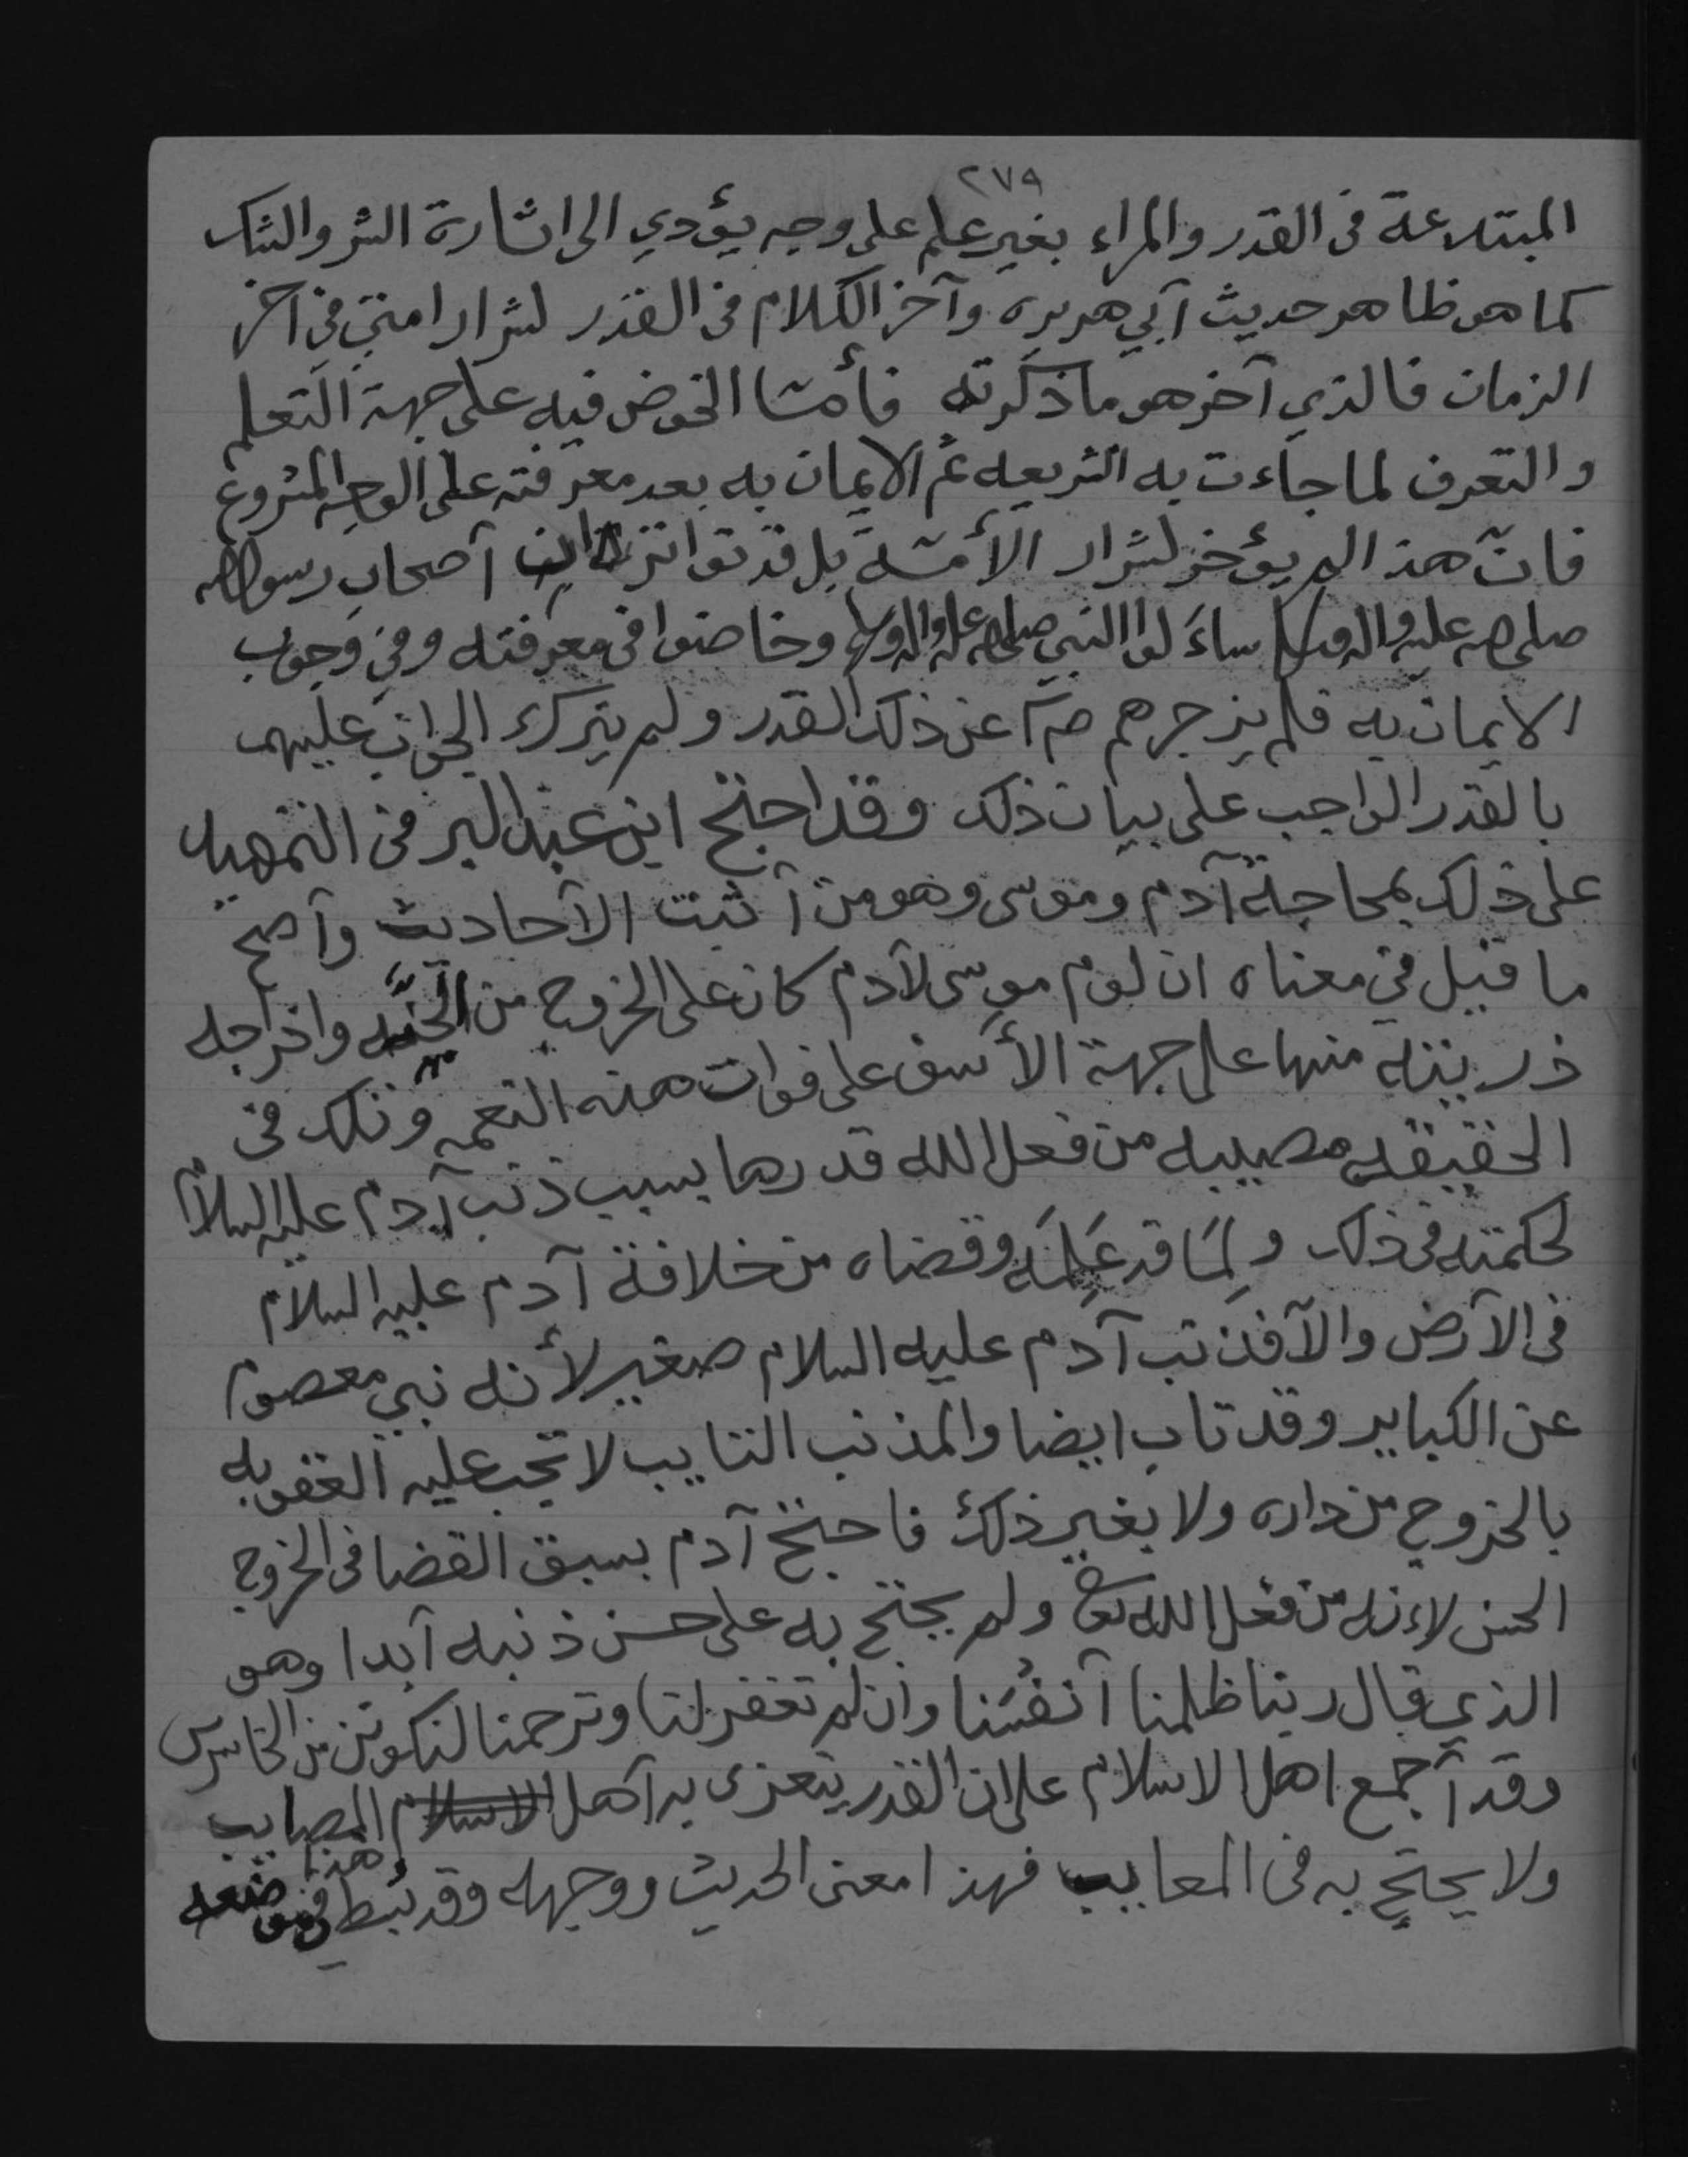 ٢٧٩
المبتدعة فى القدر والمراء بغير علم على وجه يؤدي الى اثارة الشر والشك
كما هو ظاهر حديث أبي هريره وآخر الكلام فى القدر لشرار امتي في آخر
الزمان فالذي آخر هو ما ذكرته فأمّا الخوض فيه على جهة التعلم
والتعرف لما جاءت به الشريعه ثم الايمان به بعد معرفته على الوجه المشروع
فانّ هذا لم يؤخر لشرار الأمّة بل قد تواتر ان أصحاب رسول الله
صلى الله عليه واله وسلم ساءَلوا النبي صلى الله عليه واله وسلم وخاضوا فى معرفته وفي وجوب
الايمان به فلم يزجرهم صم عن ذلك القدر ولم يترك الجواب عليهم
بالقدر الواجب على بيان ذلك وقد احتج ابن عبد البر فى التمهيد
على ذلك بمحاجة آدم وموسى وهو من أثبت الأحاديث وأصح
ما قيل في معناه ان لوم موسى لآدم كان على الخروج من الجنّه واخراجه
ذريته منها على جهة الأسف على فوات هذه النعمه وتلك فى
الحقيقه مصيبه من فعل الله قدرها بسبب ذنب آدم عليه السلام
لحكمته فى ذلك ولِمَا قد عَلِمَه وقضاه من خلافة آدم عليه السلام
فى الأرض والآ فذنب آدم عليه السلام صغير لأنه نبي معصوم
عن الكباير وقد تاب ايضا والمذنب التايب لا تجب عليه العقوبه
بالخروج من داره ولا بغير ذلك فاحتج آدم بسبق القضا فى الخروج
الحسن لاءنه من فعل الله تعالى ولم يحتج به على حسن ذنبه أبدا وهو
الذي قال ربنا ظلمنا أنفسنا وان لم تغفر لنا وترحمنا لنكونن من الخاسرين
وقد أجمع اهل الاسلام على ان القدر يتعزى به أهل الاسلام المصايب
ولا يحتج به فى المعايب فهذا معنى الحديث ووجهه وقد بُسط في موضعه
وهذا